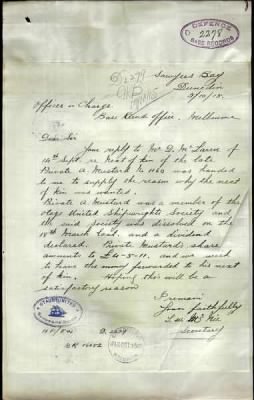 DEFENCE
2278
BASE RECORDS
Sawyers Bay
Dunedin
Officer in Charge
Base Records Office, Melbourne
Dear Sir
Your reply to Mr D. McLaren of
10th Sept. re Next of Kin of the late
Private A Mustard No 1160 was handed
to me to supply the reason why the next
of Kin was wanted.
Private A. Mustard was a member of the
Otago United Shipwrights Society and
the said society was dissolved on the
18th March last, and a dividend
declared. Private Mustard's share
amounts to £4-5-11. and we wish
to have the money forwarded to his next
of Kin. Hoping this will be a
satisfactory reason
I remain
Yours faithfully
Secretary